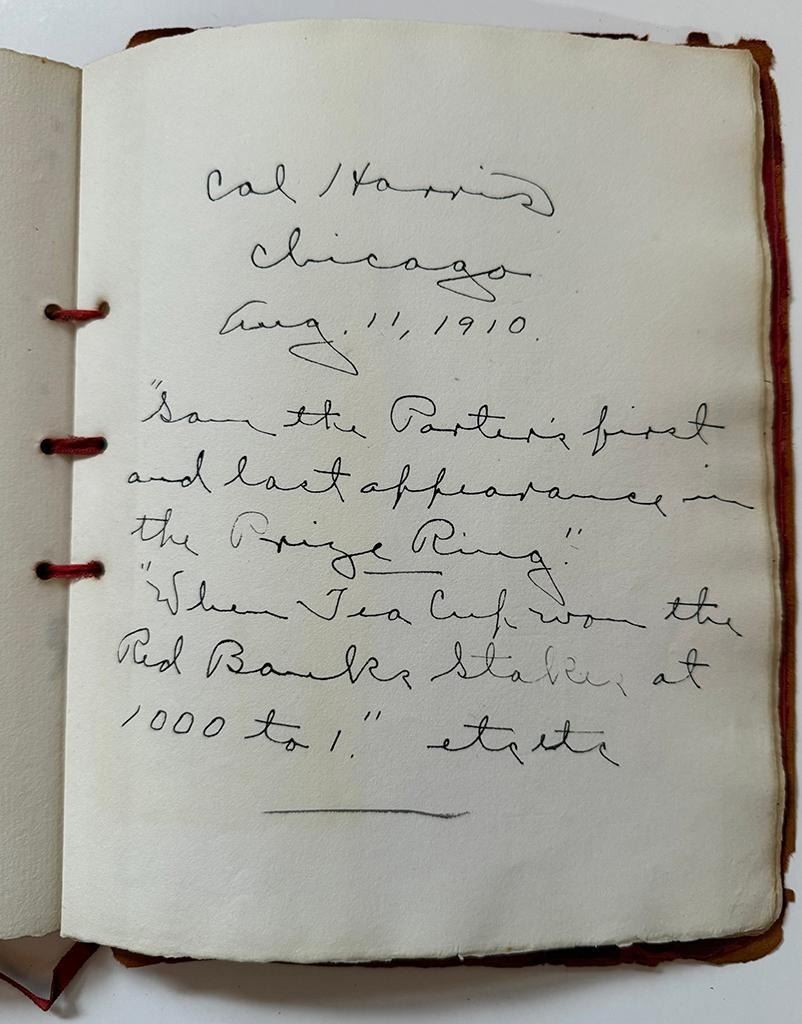 Cal Harris
Chicago
Aug. 11, 1910.
"Saw the Porter's first
and last appearance in
the Prize Ring."
"When Tea Cup won the
Red Banks Stakes at
1000 to 1." etc etc